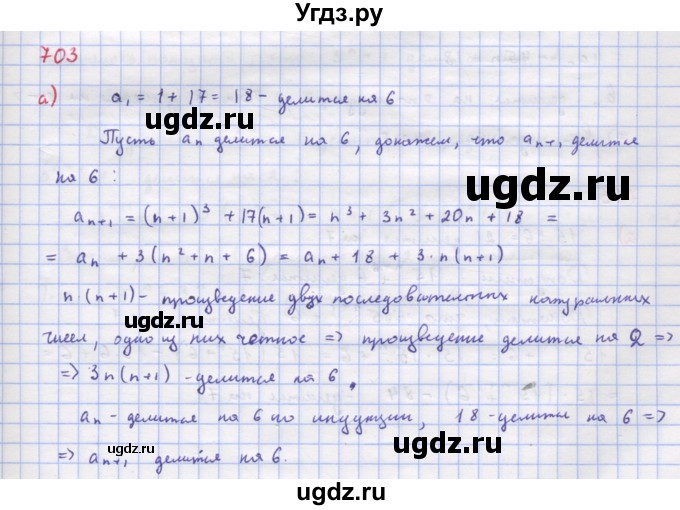 Угдз.ру
703
а) a₁ = 1 + 17 = 18 - делится на 6
ugdz.ru
Пусть aₙ делится на 6, докажем, что aₙ₊₁ делится
на 6 :
ugdz.ru
aₙ₊₁ = (n+1)³ + 17(n+1) = n³ + 3n² + 20n + 18 =
ugdz.ru
= aₙ + 3(n² + n + 6) = aₙ + 18 + 3·n(n+1)
n(n+1) - произведение двух последовательных натуральных
ugdz.ru
чисел, одно из них четное => произведение делится на 2 =>
=> 3n(n+1) - делится на 6,
ugdz.ru
aₙ - делится на 6 по индукции, 18 - делится на 6 =>
=> aₙ₊₁ делится на 6.
ugdz.ru
ugdz.ru